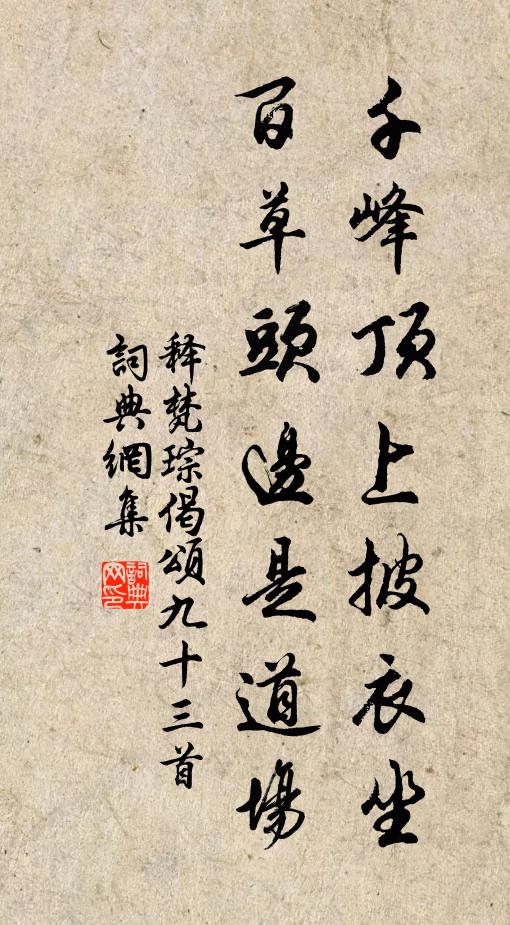 千峰顶上披衣坐
百草頭邊是道場
释梵琮偈頌九十三首
詞典網集
詞典网印